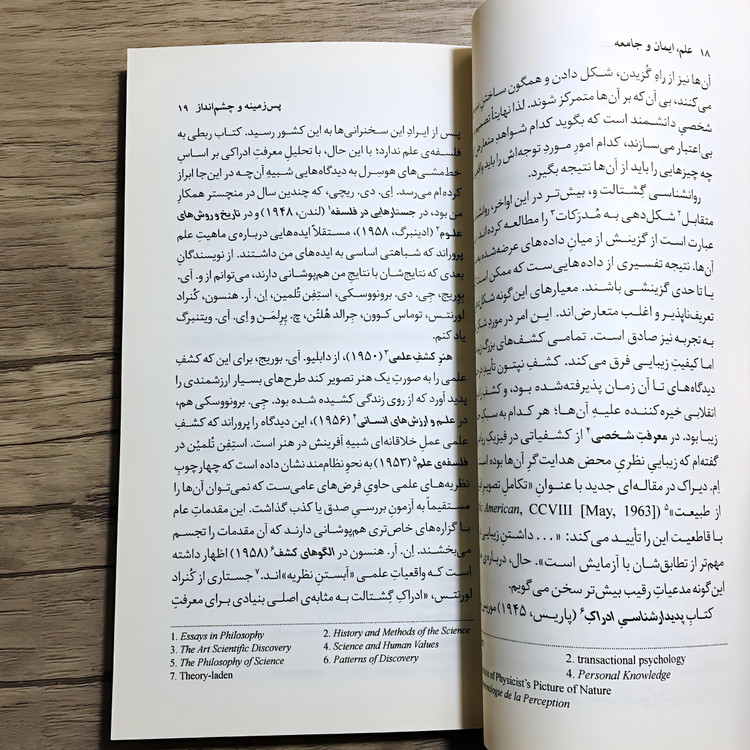 ۱۸ علم، ایمان و جامعه
آن‌ها نیز از راهِ گُزیدن، شکل دادن و همگون ساختنِ
می‌کنند، بی‌آن‌که بر آن‌ها متمرکز شوند. لذا نهایتاً
شخصیِ دانشمند است که بگوید کدام شواهدِ
بی‌اعتبار می‌سازند، کدام امورِ موردِ توجه‌اش را باید
چه چیزهایی را باید از آن‌ها نتیجه بگیرد.
روانشناسیِ گشتالت و، بیش‌تر در این اواخر،
متقابل۲ شکل‌دهی به مُدرَکات۳ را مطالعه کرده‌اند.
عبارت است از گزینش از میانِ داده‌های عرضه‌شده
آن‌ها. نتیجه تفسیری از داده‌هایی‌ست که ممکن است
یا تا حدی گزینشی باشند. معیارهای این‌گونه
تعریف‌ناپذیر و اغلب متعارض‌اند. این امر در موردِ
به تجربه نیز صادق است. تمامیِ کشف‌های بزرگ
اما کیفیتِ زیبایی فرق می‌کند. کشفِ نپتون تأییدِ
دیدگاه‌های تا آن زمان پذیرفته‌شده بود، و کشفِ
انقلابی خیره‌کننده علیهِ آن‌ها؛ هر کدام به
زیبا بود. در معرفتِ شخصی۴ از کشفیاتی در فیزیک
گفته‌ام که زیباییِ نظریِ محض هدایت‌گرِ آن‌ها بوده
اِم. دیراک در مقاله‌ای جدید با عنوانِ «تکاملِ تصویرِ
از طبیعت»۵ American, CCVIII [May, 1963])
با قاطعیت این را تأیید می‌کند: «... داشتنِ زیبایی
مهم‌تر از تطابق‌شان با آزمایش است». حال، درباره‌ی
این‌گونه مدعیاتِ رقیب بیش‌تر سخن می‌گویم.
کتابِ پدیدارشناسیِ ادراکِ۶ (پاریس، ۱۹۴۵)
2. transactional psychology
4. Personal Knowledge
of Physicist's Picture of Nature
de la Perception
پس‌زمینه و چشم‌انداز ۱۹
پس از ایرادِ این سخنرانی‌ها به این کشور رسید. کتاب ربطی به
فلسفه‌ی علم ندارد؛ با این حال، با تحلیلِ معرفتِ ادراکی بر اساسِ
خط‌مشی‌های هوسرل به دیدگاه‌هایی شبیهِ آن‌چه در این‌جا ابراز
کرده‌ام می‌رسد. اِی. دی. ریچی، که چندین سال در منچستر همکارِ
من بود، در جستارهایی در فلسفه۱ (لندن، ۱۹۴۸) و در تاریخ و روش‌های
علوم۲ (ادینبرگ، ۱۹۵۸)، مستقلاً ایده‌هایی درباره‌ی ماهیتِ علم
پروراند که شباهتی اساسی به ایده‌های من داشتند. از نویسندگانِ
بعدی که نتایج‌شان با نتایجِ من هم‌پوشانی دارند، می‌توانم از و. آی.
بِوریج، جِی. دی. برونووسکی، استِفِن تُلمین، اِن. آر. هنسون، کُنراد
لورنتس، توماس کوون، جِرالد هُلتُن، چ. پِرِلمَن و اِی. آی. ویتنبرگ
یاد کنم.
هنرِ کشفِ علمی۳ (۱۹۵۰)، از دابلیو. آی. بوریج، برای این که کشفِ
علمی را به صورتِ یک هنر تصویر کند طرح‌های بسیار ارزشمندی را
پدید آورد که از روی زندگی کشیده شده بود. جِی. برونووسکی هم،
در علم و ارزش‌های انسانی۴ (۱۹۵۶)، این دیدگاه را پروراند که کشفِ
علمی عملِ خلاقانه‌ای شبیهِ آفرینش در هنر است. استِفِن تُلمیْن در
فلسفه‌ی علم۵ (۱۹۵۳) به نحوِ نظام‌مند نشان داده است که چهارچوبِ
نظریه‌های علمی حاویِ فرض‌های عامی‌ست که نمی‌توان آن‌ها را
مستقیماً به آزمونِ بررسیِ صدق یا کذب گذاشت. این مقدماتِ عام
با گزاره‌های خاص‌تری هم‌پوشانی دارند که آن مقدمات را تجسم
می‌بخشند. اِن. آر. هنسون در الگوهای کشف۶ (۱۹۵۸) اظهار داشته
است که واقعیاتِ علمی «آبستنِ نظریه»‌اند.۷ جستاری از کُنراد
لورنتس، «ادراکِ گشتالت به مثابه‌ی اصلی بنیادی برای معرفتِ
1. Essays in Philosophy 2. History and Methods of the Science
3. The Art Scientific Discovery 4. Science and Human Values
5. The Philosophy of Science 6. Patterns of Discovery
7. Theory-laden